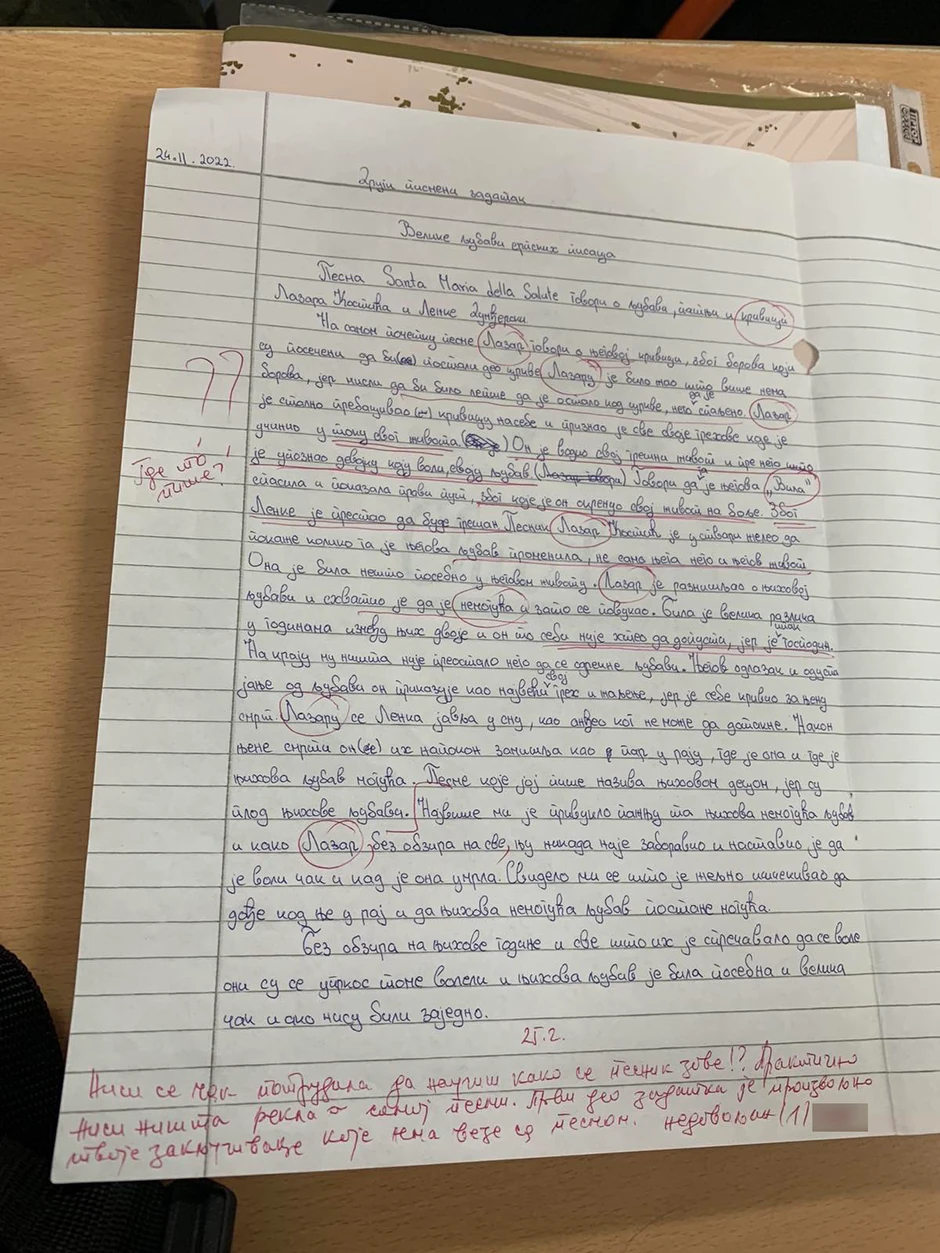 24.11.2022.
Други писмени задатак
Велике љубави српских писаца
Песма Santa Maria della Salute говори о љубави, патњи и кривици
Лазара Костића и Ленке Дунђерски.
На самом почетку песме Лазар говори о његовој кривици, због борова који
су посечени да би(се) постали део цркве. Лазару је било жао што више нема
борова, јер мисли да би било лепше да је остало код цркве, него да је спаљено. Лазар
је стално пребацивао кривицу на себе и признао је све своје грехове које је
учинио у току свог живота. Он је водио свој грешни живот и пре него што
је упознао девојку коју воли, своју љубав (Лазар говора) Говори да ја је његова „Вила"
Где то пише?
спасила и показала прави пут, због које је он окренуо свој живот на боље. Због
Ленке је престао да буде грешан. Песник Лазар Костић је у ствари желео да
покаже колико га је његова љубав променила, не само њега него и његов живот.
Она је била нешто посебно у његовом животу. Лазар је размишљао о њиховој
љубави и схватио је да је немогућа и зато се повукао. Била је велика разлика
у годинама између њих двоје и он то себи није хтео да допусти, јер је ипак господин.
На крају му ништа није преостало него да се одрекне љубави. Његов одлазак и одуста
јање од љубави он приказује као највећи свој грех и кајење, јер је себе кривио за њену
смрт. Лазару се Ленка јавља у сну, као анђео ког не може да дотакне. Након
њене смрти он(се) их напокон замишља као пар у рају, где је она и где је
њихова љубав могућа. Песме које јој пише назива њиховом децом, јер су
плод њихове љубави. Највише ми је привукло пажњу та њихова немогућа љубав
и како Лазар без обзира на све, њу никада није заборавио и наставио је да
је воли чак и кад је она умрла. Свидело ми се што је жељно ишчекивао да
дође код ње у рај и да њихова немогућа љубав постане могућа.
Без обзира на њихове године и све што их је спречавало да се воле
они су се упркос томе волели и њихова љубав је била посебна и велика
чак и ако нису били заједно.
25.2.
Ниси се чак потрудила да научиш како се песник зове!? Практично
ниси ништа рекла о самој песми. Први део задатка је произвољно
твоје закључивање које нема везе са песмом. недовољан (1)